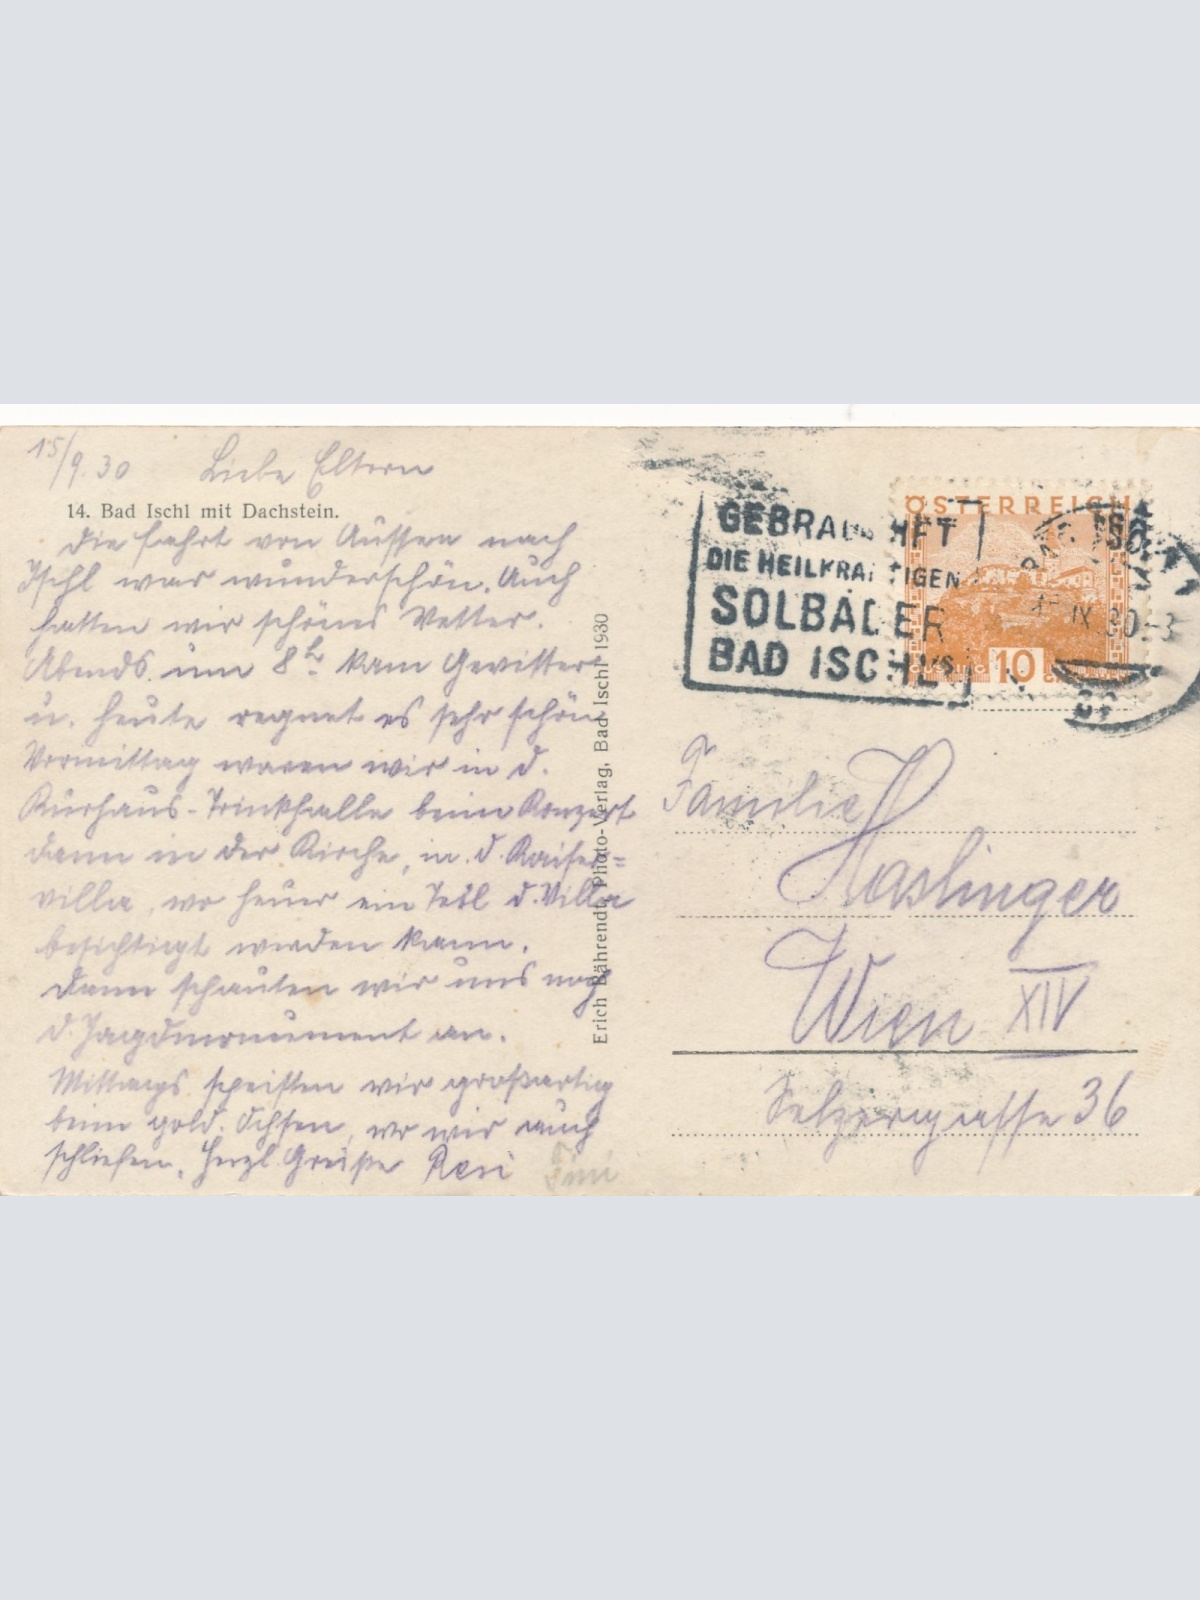 15/9.30 Liebe Eltern
14. Bad Ischl mit Dachstein.
Die Fahrt von Aussee nach
Ischl war wunderschön. Auch
hatten wir schönes Wetter.
Abends um 8h kam Gewitter
u. heute regnet es sehr schön
Vormittag waren wir in d.
Kurhaus-Trinkhalle beim Konzert
dann in der Kirche, in d. Kaiser=
villa, wo heuer ein Teil d. Villa
besichtigt werden kann.
Dann schauten wir uns noch
d. Jagdmonument an.
Mittags speisten wir großartig
beim gold. Ochsen, wo wir auch
schliefen. Herzl. Grüße Resi
Erich Bährendt, Photo-Verlag, Bad Ischl 1930
GEBRAUCHET
DIE HEILKRÄFTIGEN
SOLBÄDER
BAD ISCHL'S
ÖSTERREICH
GÜSSING 10
BAD ISCHL
IX 30-13
Familie
Haslinger
Wien XIV
Selzergasse 36